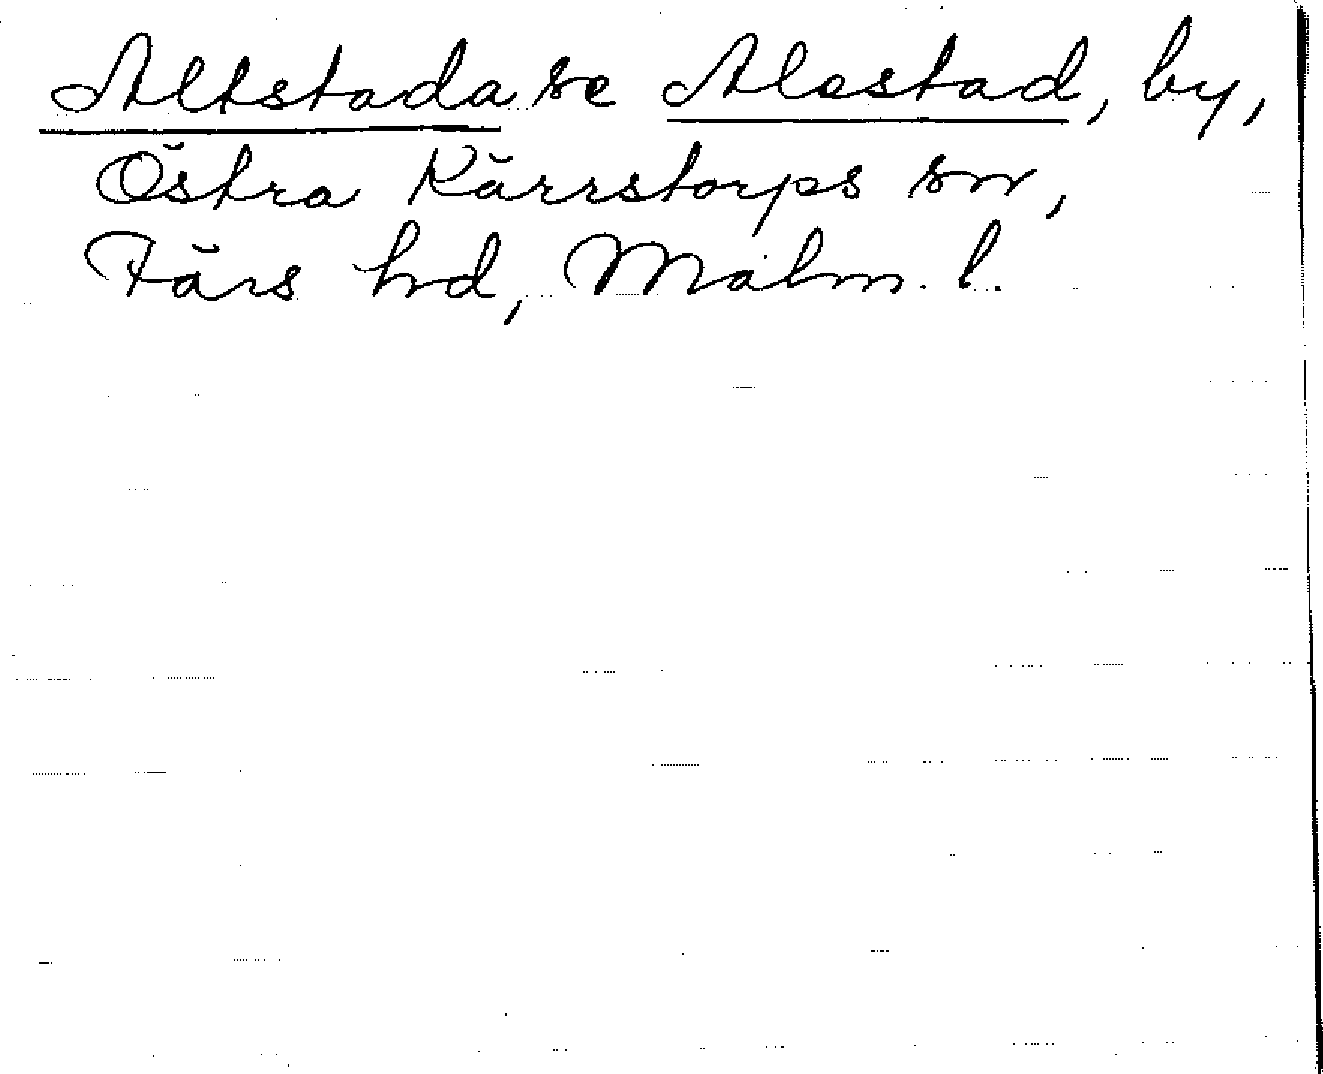 Altstada se Alestad, by,
Östra Kärrstorps sn,
Färs hd, Malm. l.